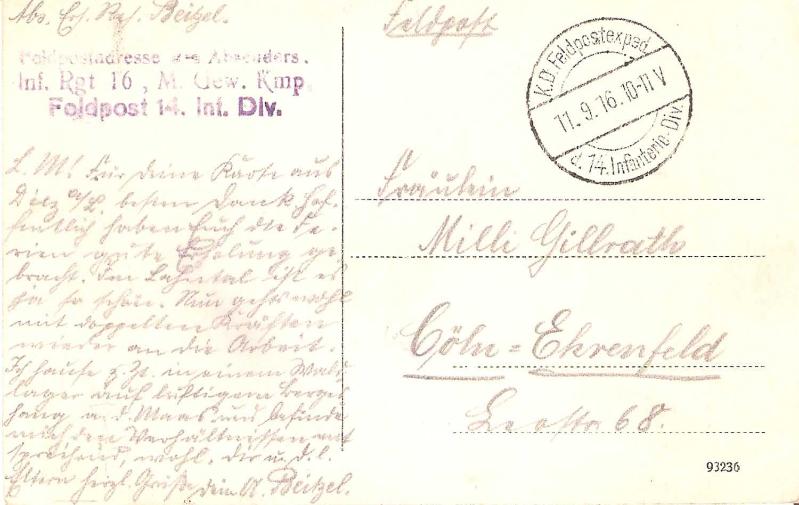 Abs. Ers. Res. Beitzel.
Feldpost
Feldpostadresse des Absenders.
Inf. Rgt 16, M. Gew. Kmp.
Feldpost 14. Inf. Div.
K.D. Feldpostexped.
11.9.16.10-11V
d. 14. Infanterie-Div.
L. M! Für deine Karte aus
Diez a/L. besten Dank Hof-
fentlich haben Euch die Fe-
rien gute Erholung ge-
bracht. Im Lahntal ist es
ja so schön. Nun gehts wohl
mit doppelten Kräften
wieder an die Arbeit.
Ich hause z. Zt. in einem Wald
lager auf luftigem Berges
hang a. d. Maas und befinde
mich den Verhältnissen ent
sprechend, wohl. Dir u. d. l.
Eltern herzl. Grüße dein A. Beitzel.
Fräulein
Milli Gillrath
Cöln=Ehrenfeld
Leostr 68.
93236